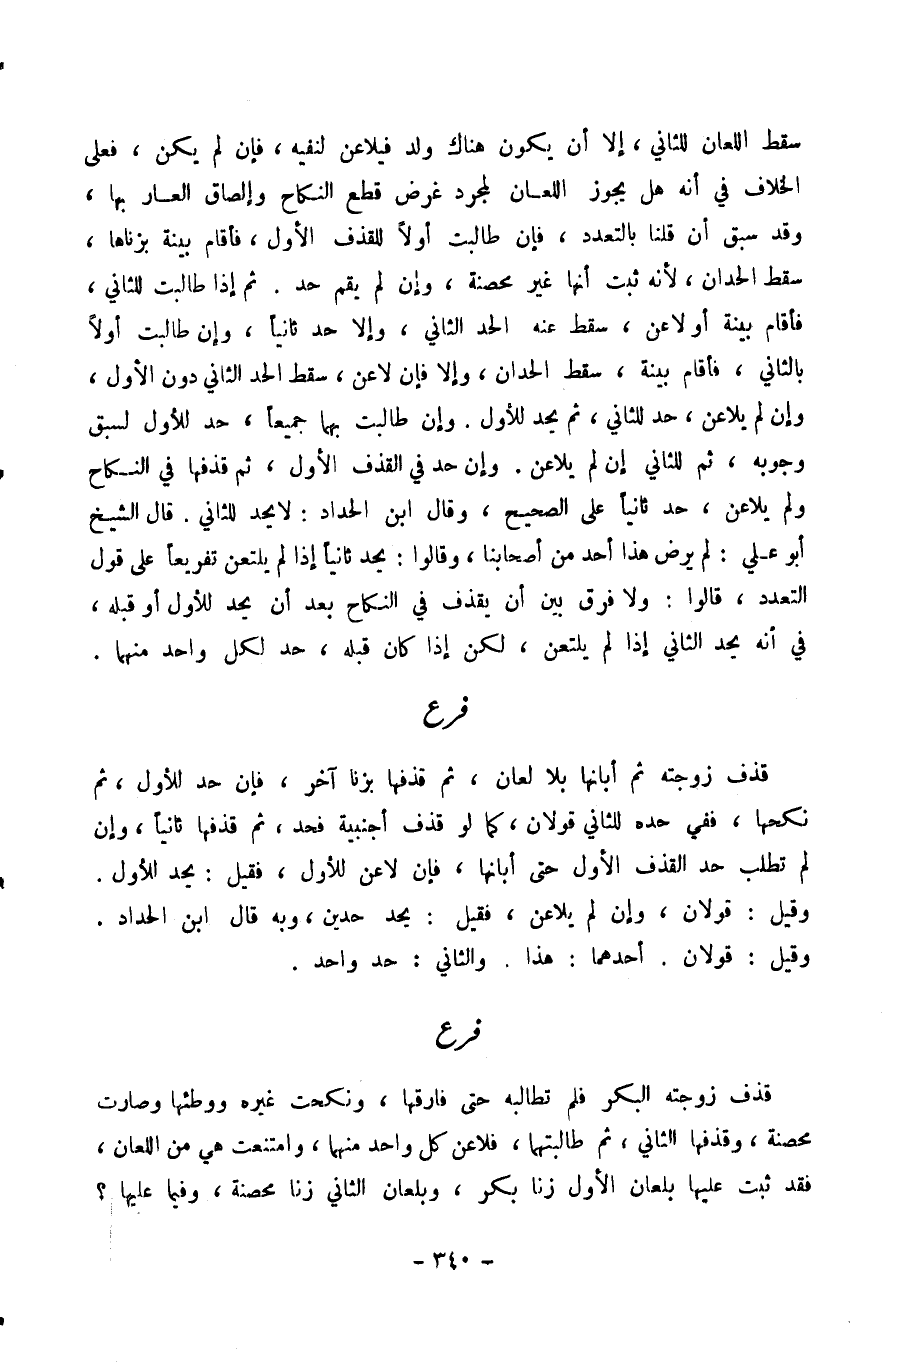 سقط اللعان للثاني ، إلا أن يكون هناك ولد فيلاعن لنفيه ، فإن لم يكن ، فعلى
الخلاف في أنه هل يجوز اللعـان لمجرد غرض قطع النكاح وإلصاق العـار بها ،
وقد سبق أن قلنا بالتعدد ، فإن طالبت أولاً للقذف الأول ، فأقام بينة بزناها ،
سقط الحدان ، لأنه ثبت أنها غير محصنة ، وإن لم يقم حد . ثم إذا طالبت للثاني ،
فأقام بينة أو لاعن ، سقط عنه الحد الثاني ، وإلا حد ثانياً ، وإن طالبت أولاً
بالثاني ، فأقام بينة ، سقط الحدان ، وإلا فإن لاعن ، سقط الحد الثاني دون الأول ،
وإن لم يلاعن ، حد للثاني ، ثم يحد للأول . وإن طالبت بها جميعاً ، حد للأول لسبق
وجوبه ، ثم للثاني إن لم يلاعن . وإن حد في القذف الأول ، ثم قذفها في النـكاح
ولم يلاعن ، حد ثانياً على الصحيح ، وقال ابن الحداد : لايحد للثاني . قال الشيخ
أبو عـلي : لم يرض هذا أحد من أصحابنا ، وقالوا : يحد ثانياً إذا لم يلتعن تفريعاً على قول
التعدد ، قالوا : ولا فرق بين أن يقذف في النكاح بعد أن يحد للأول أو قبله ،
في أنه يحد الثاني إذا لم يلتعن ، لكن إذا كان قبله ، حد لكل واحد منهما .
فرع
قذف زوجته ثم أبانها بلا لعان ، ثم قذفها بزنا آخر ، فإن حد للأول ، ثم
نكحها ، ففي حده للثاني قولان ، كما لو قذف أجنبية فحد ، ثم قذفها ثانياً ، وإن
لم تطلب حد القذف الأول حتى أبانها ، فإن لاعن للأول ، فقيل : يحد للأول .
وقيل : قولان ، وإن لم يلاعن ، فقيل : يحد حدين ، وبه قال ابن الحداد .
وقيل : قولان . أحدهما : هذا . والثاني : حد واحد .
فرع
قذف زوجته البكر فلم تطالبه حتى فارقها ، ونكحت غيره ووطئها وصارت
محصنة ، وقذفها الثاني ، ثم طالبتها ، فلاعن كل واحد منهما ، وامتنعت هي من اللعان ،
فقد ثبت عليها بلعان الأول زنا بكر ، وبلعان الثاني زنا محصنة ، وفيما عليها ؟
- ٣٤٠ -